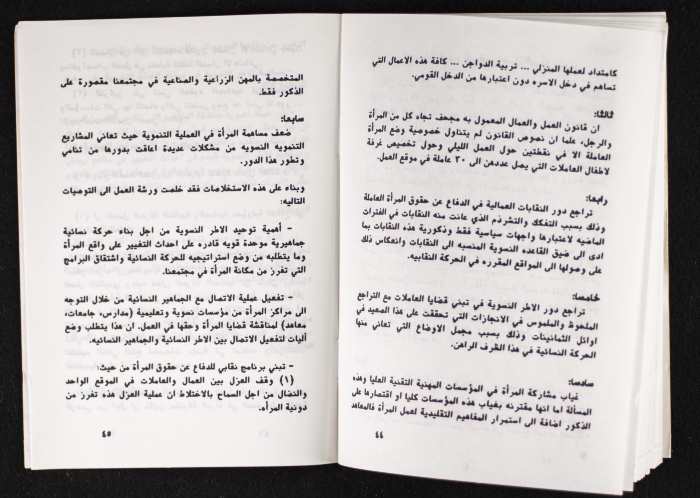 كامتداد لعملها المنزلي ... تربية الدواجن ... كافة هذه الاعمال التي
تساهم في دخل الاسره دون اعتبارها من الدخل القومي.
ثالثا:
ان قانون العمل والعمال المعمول به مجحف تجاه كل من المرأة
والرجل، علما ان نصوص القانون لم يتناول خصوصية وضع المرأة
العاملة الا في نقطتين حول العمل الليلي وحول تخصيص غرفة
لاطفال العاملات التي يصل عددهن الى ٣٠ عاملة في موقع العمل.
رابعا:
تراجع دور النقابات العمالية في الدفاع عن حقوق المرأة العاملة
وذلك بسبب التفكك والتشرذم الذي عانت منه النقابات في الفترات
الماضيه لاعتبارها واجهات سياسية فقط وذكورية هذه النقابات بما
ادى الى ضيق القاعده النسوية المنسبه الى النقابات وانعكاس ذلك
على وصولها الى المواقع المقرره في الحركة النقابيه.
خامسا:
تراجع دور الاطر النسوية في تبني قضايا العاملات مع التراجع
الملحوظ والملموس في الانجازات التي تحققت على هذا الصعيد في
اوائل الثمانينات وذلك بسبب مجمل الاوضاع التي تعاني منها
الحركة النسائية في هذا الظرف الراهن.
سادسا:
غياب مشاركة المرأة في المؤسسات المهنية التقنية العليا وهذه
المسألة اما انها مقترنه بغياب هذه المؤسسات كليا او اقتصارها على
الذكور اضافة الى استمرار المفاهيم التقليدية لعمل المرأة فالمعاهد
٤٤
المتخصصة بالمهن الزراعية والصناعية في مجتمعنا مقصورة على
الذكور فقط.
سابعا:
ضعف مساهمة المرأة في العملية التنموية حيث تعاني المشاريع
التنمويه النسويه من مشكلات عديدة اعاقت بدورها من تنامي
وتطور هذا الدور.
وبناء على هذه الاستخلاصات فقد خلصت ورشة العمل الى التوصيات
التاليه:
- أهمية توحيد الاطر النسوية من اجل بناء حركة نسائية
جماهيرية موحدة قويه قادره على احداث التغيير على واقع المرأة
وما يتطلبه من وضع استراتيجيه للحركة النسائية واشتقاق البرامج
التي تفرز من مكانة المرأة في مجتمعنا.
- تفعيل عملية الاتصال مع الجماهير النسائية من خلال التوجه
الى مراكز المرأة من مؤسسات نسوية وتعليمية (مدارس، جامعات،
معاهد) لمناقشة قضايا المرأة وحقها في العمل. ان هذا يتطلب وضع
آليات لتفعيل الاتصال بين الاطر النسائية والجماهير النسائيه.
- تبني برنامج نقابي للدفاع عن حقوق المرأة من حيث:
(١) وقف العزل بين العمال والعاملات في الموقع الواحد
والنضال من اجل السماح بالاختلاط ان عملية العزل هذه تفرز من
دونية المرأه.
٤٥